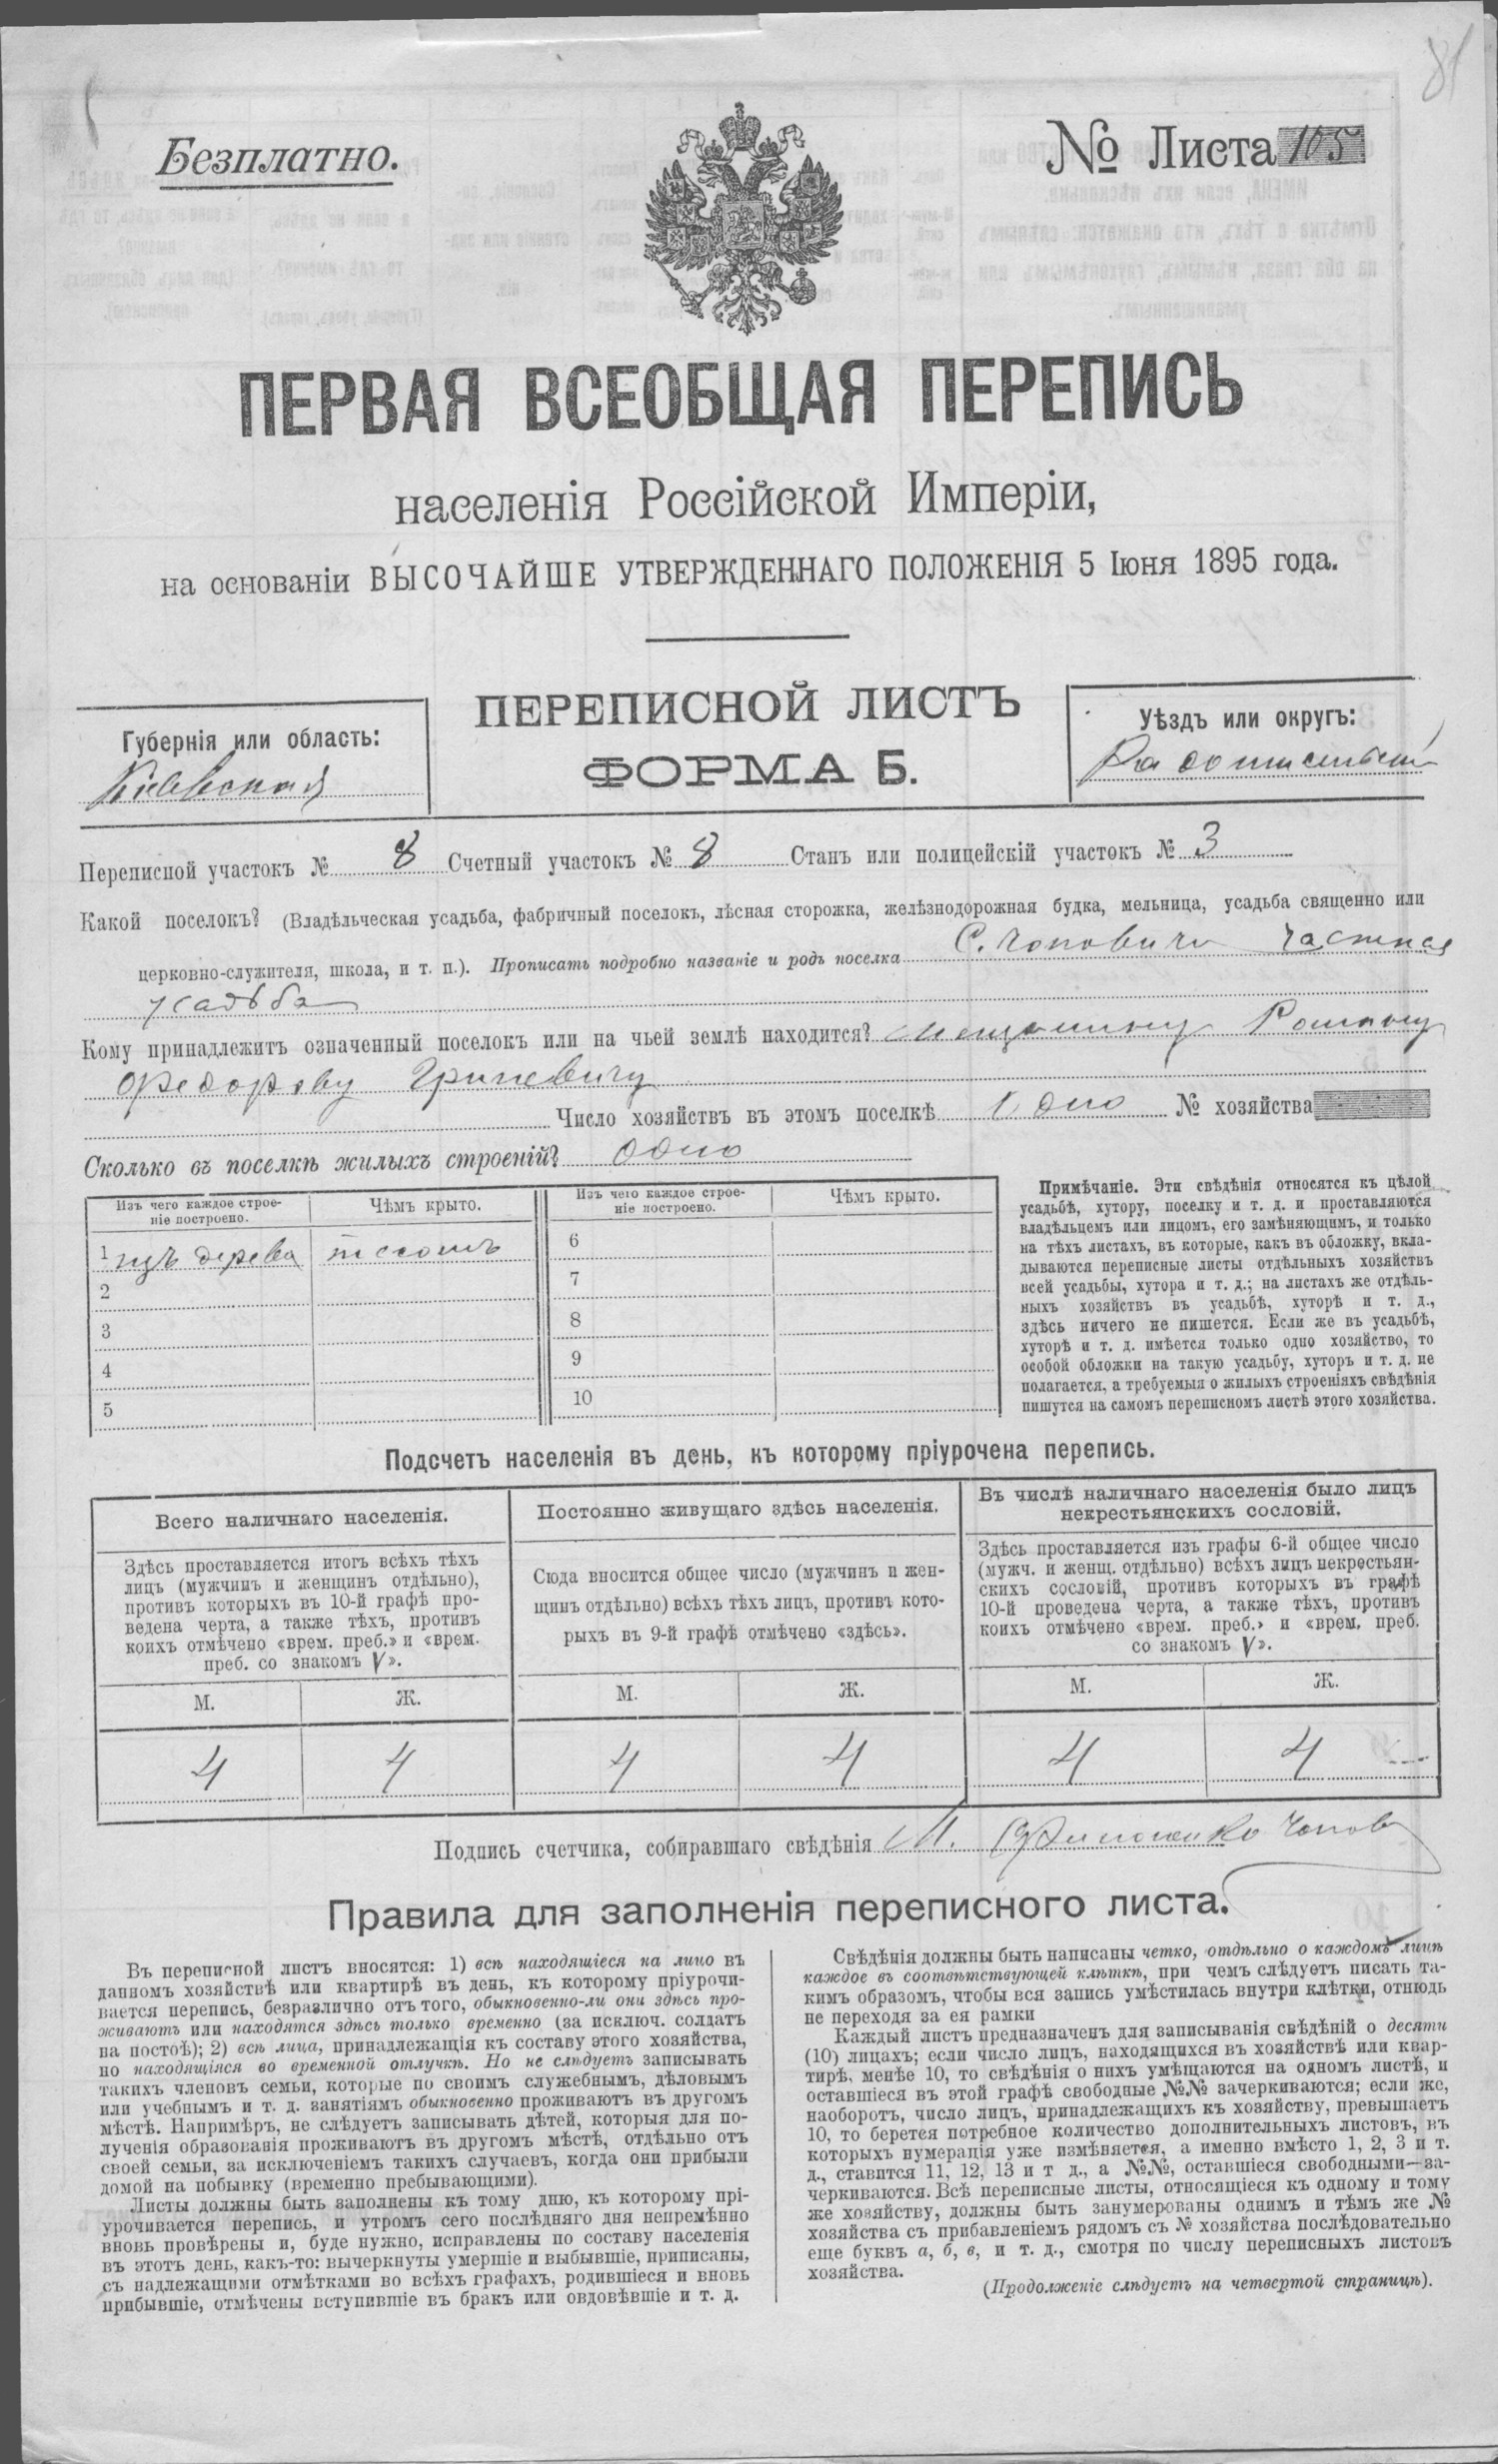 81
Безплатно.
№ Листа 105
ПЕРВАЯ ВСЕОБЩАЯ ПЕРЕПИСЬ
населенія Россійской Имперіи,
на основаніи ВЫСОЧАЙШЕ УТВЕРЖДЕННАГО ПОЛОЖЕНІЯ 5 Іюня 1895 года.
ПЕРЕПИСНОЙ ЛИСТЪ
ФОРМА Б.
Губернія или область:
Кіевская
Уѣздъ или округъ:
Радомысльскій
Переписной участокъ № 8 Счетный участокъ № 8 Станъ или полицейскій участокъ № 3
Какой поселокъ? (Владѣльческая усадьба, фабричный поселокъ, лѣсная сторожка, желѣзнодорожная будка, мельница, усадьба священно или
церковно-служителя, школа, и т. п.). Прописать подробно названіе и родъ поселка С. Чоповичи частная
усадьба
Кому принадлежитъ означенный поселокъ или на чьей землѣ находится? мещанину Роману
Федорову Гриневичу
Число хозяйствъ въ этомъ поселкѣ одно № хозяйства
Сколько въ поселкѣ жилыхъ строеній? одно
Изъ чего каждое строе-
ніе построено.
Чѣмъ крыто.
Изъ чего каждое строе-
ніе построено.
Чѣмъ крыто.
1 изъ дерева тесомъ 6
2 7
3 8
4 9
5 10
Примѣчаніе. Эти свѣдѣнія относятся къ цѣлой
усадьбѣ, хутору, поселку и т. д. и проставляются
владѣльцемъ или лицомъ, его замѣняющимъ, и только
на тѣхъ листахъ, въ которые, какъ въ обложку, вкла-
дываются переписные листы отдѣльныхъ хозяйствъ
всей усадьбы, хутора и т. д.; на листахъ же отдѣль-
ныхъ хозяйствъ въ усадьбѣ, хуторѣ и т. д.,
здѣсь ничего не пишется. Если же въ усадьбѣ,
хуторѣ и т. д. имѣется только одно хозяйство, то
особой обложки на такую усадьбу, хуторъ и т. д. не
полагается, а требуемыя о жилыхъ строеніяхъ свѣдѣнія
пишутся на самомъ переписномъ листѣ этого хозяйства.
Подсчетъ населенія въ день, къ которому пріурочена перепись.
Всего наличнаго населенія.
Здѣсь проставляется итогъ всѣхъ тѣхъ
лицъ (мужчинъ и женщинъ отдѣльно),
противъ которыхъ въ 10-й графѣ про-
ведена черта, а также тѣхъ, противъ
коихъ отмѣчено «врем. преб.» и «врем.
преб. со знакомъ V».
Постоянно живущаго здѣсь населенія.
Сюда вносится общее число (мужчинъ и жен-
щинъ отдѣльно) всѣхъ тѣхъ лицъ, противъ кото-
рыхъ въ 9-й графѣ отмѣчено «здѣсь».
Въ числѣ наличнаго населенія было лицъ
некрестьянскихъ сословій.
Здѣсь проставляется изъ графы 6-й общее число
(мужч. и женщ. отдѣльно) всѣхъ лицъ некрестьян-
скихъ сословій, противъ которыхъ въ графѣ
10-й проведена черта, а также тѣхъ, противъ
коихъ отмѣчено «врем. преб.» и «врем. преб.
со знакомъ V».
М. Ж. М. Ж. М. Ж.
4 4 4 4 4 4
Подпись счетчика, собиравшаго свѣдѣнія М.
Правила для заполненія переписного листа.
Въ переписной листъ вносятся: 1) всѣ находящіеся на лицо въ
данномъ хозяйствѣ или квартирѣ въ день, къ которому пріурочи-
вается перепись, безразлично отъ того, обыкновенно-ли они здѣсь про-
живаютъ или находятся здѣсь только временно (за исключ. солдатъ
на постоѣ); 2) всѣ лица, принадлежащія къ составу этого хозяйства,
но находящіяся во временной отлучкѣ. Но не слѣдуетъ записывать
такихъ членовъ семьи, которые по своимъ служебнымъ, дѣловымъ
или учебнымъ и т. д. занятіямъ обыкновенно проживаютъ въ другомъ
мѣстѣ. Напримѣръ, не слѣдуетъ записывать дѣтей, которыя для по-
лученія образованія проживаютъ въ другомъ мѣстѣ, отдѣльно отъ
своей семьи, за исключеніемъ такихъ случаевъ, когда они прибыли
домой на побывку (временно пребывающими).
Листы должны быть заполнены къ тому дню, къ которому прі-
урочивается перепись, и утромъ сего послѣдняго дня непремѣнно
вновь провѣрены и, буде нужно, исправлены по составу населенія
въ этотъ день, какъ-то: вычеркнуты умершіе и выбывшіе, приписаны,
съ надлежащими отмѣтками во всѣхъ графахъ, родившіеся и вновь
прибывшіе, отмѣчены вступившіе въ бракъ или овдовѣвшіе и т. д.
Свѣдѣнія должны быть написаны четко, отдѣльно о каждомъ лицѣ
каждое въ соотвѣтствующей клѣткѣ, при чемъ слѣдуетъ писать та-
кимъ образомъ, чтобы вся запись умѣстилась внутри клѣтки, отнюдь
не переходя за ея рамки
Каждый листъ предназначенъ для записыванія свѣдѣній о десяти
(10) лицахъ; если число лицъ, находящихся въ хозяйствѣ или квар-
тирѣ, менѣе 10, то свѣдѣнія о нихъ умѣщаются на одномъ листѣ, и
оставшіеся въ этой графѣ свободные №№ зачеркиваются; если же,
наоборотъ, число лицъ, принадлежащихъ къ хозяйству, превышаетъ
10, то берется потребное количество дополнительныхъ листовъ, въ
которыхъ нумерація уже измѣняется, а именно вмѣсто 1, 2, 3 и т.
д., ставится 11, 12, 13 и т д., а №№, оставшіеся свободными—за-
черкиваются. Всѣ переписные листы, относящіеся къ одному и тому
же хозяйству, должны быть занумерованы однимъ и тѣмъ же №
хозяйства съ прибавленіемъ рядомъ съ № хозяйства послѣдовательно
еще буквъ а, б, в, и т. д., смотря по числу переписныхъ листовъ
хозяйства.
(Продолженіе слѣдуетъ на четвертой страницѣ).